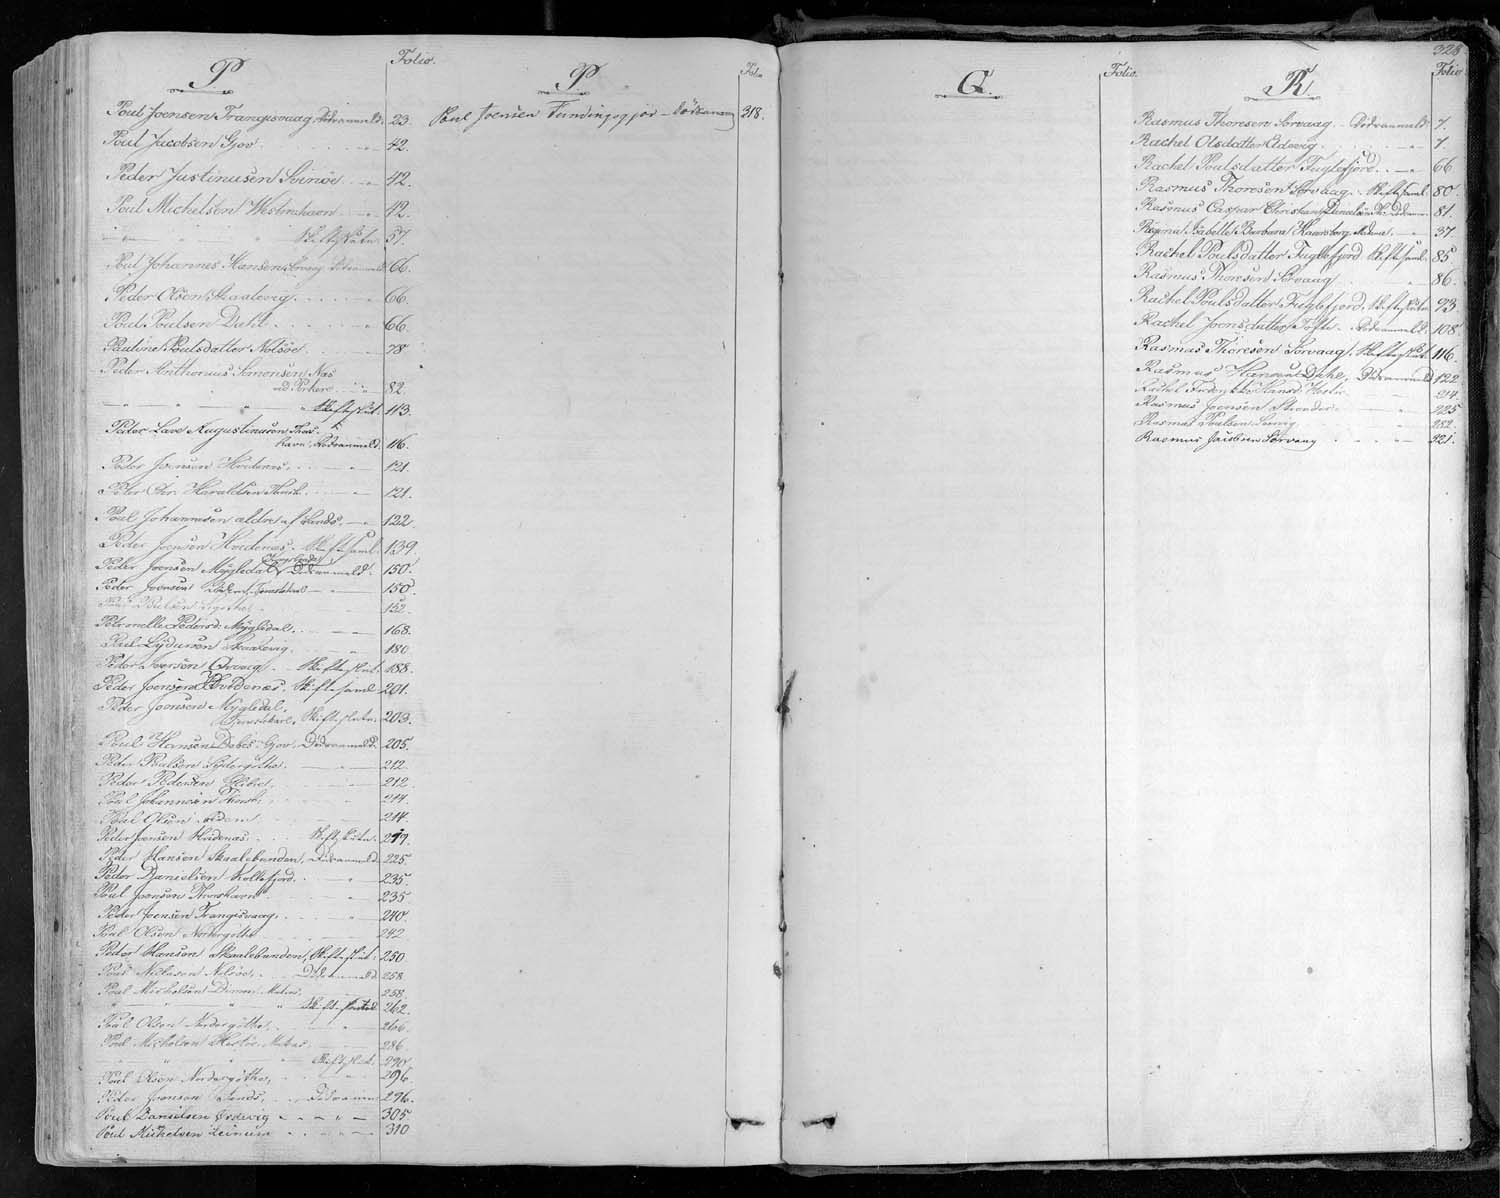 P. Folio.
Poul Joensen Trangisvaag, Dödsanmeld. 23.
Poul Jacobsen Gjov 42.
Peder Justinusen Svinöe 42.
Poul Michelsen Westmanhavn 42.
" " " Skifteslutn. 57.
Poul Johannes Hansen, Sorvaag Dödsanmeld. 66.
Peder Olsen, Skaalevig 66.
Poul Poulsen Dahl 66.
Pauline Poulsdatter Nolsöe 78
Peder Anthonius Simonsen, Næs
ad Porkere 82.
" " " " Skifteslut. 113.
Peder Lave Augustinusen Thors-
havn, Dödsanmeld. 116.
Peder Joensen Hvidenæs 121.
Peter Chr. Haraldsen Thorsh. 121.
Poul Johannesen ældre af Sands. 122.
Peder Joensen Hvidenæs. Skiftesaml. 139.
Peder Joensen Mygledal, Dödsanmeld. 150.
Peder Joensen Tjenestekarl 150.
Poul Poulsen 152.
Petronelle Pedersd. Mygledal 168.
Poul Skaalevig 180
Peder Iversen Qvaag Skifteslut. 188.
Peder Joensen Hvidenæs. Skiftesaml. 201.
Peder Joensen Mygledal,
Tjenestekarl, Skifteslutn. 203.
Poul Hansen Debes, Gjov. Dödsanmeld. 205.
Peder Poulsen Sydergöthe 212.
Peder Pedersen 212.
Poul Johannesen Thorsh. 214.
Poul Olsen 214.
Peder Joensen Hvidenæs. Skifteslutn. 219.
Peder Hansen Skaalebunden, Dödsanmeld. 225.
Peder Danielsen Kollefjord. 235.
Poul Joensen Thorshavn 235.
Peder Joensen Trangisvaag, 240.
Poul Olsen Nordergöthe 242.
Peder Hansen Skaalebunden, Skifteslut. 250.
Poul Nicklasen Nolsöe, Dödsanmeld. 258.
Poul Michelsen Dimon 258.
" " " " 262.
Poul Olsen Nordergöthe, 266.
Poul Michelsen 286.
" " " Skifteslut. 290.
Poul Olsen Nordergöthe, 296.
Peder Joensen Sands, Dödsanm. 296.
Poul Danielsen Ördevig 305
Poul Michelsen Leinum 310
P. Folio
Poul Joensen Fundingsgjov - Dödsanm. 318.
Q. Folio.
328
R. Folio
Rasmus Thoresen Sorvaag. Dödsanmeld. 7.
Rachel Olsdatter Ördevig 7.
Rachel Poulsdatter Fuglefjord. 66
Rasmus Thoresen Sorvaag. Skiftesaml. 80.
Rasmus Caspar Christian Danielsen Dödsanm. 81.
Isabelle Barbara 37.
Rachel Poulsdatter Fuglefjord Skiftesaml. 85
Rasmus Thoresen Sorvaag 86.
Rachel Poulsdatter Fuglefjord. Skifteslut. 93
Rachel Joensdatter Tofte. Dödsanmeld. 108
Rasmus Thoresen Sorvaag. Skifteslut. 116.
Rasmus Hansen Dahl, Dödsanmeld 122
Rachel Hansd. 214.
Rasmus Joensen Strender 225
Rasmus Poulsen 282.
Rasmus Jacobsen Sorvaag 321.